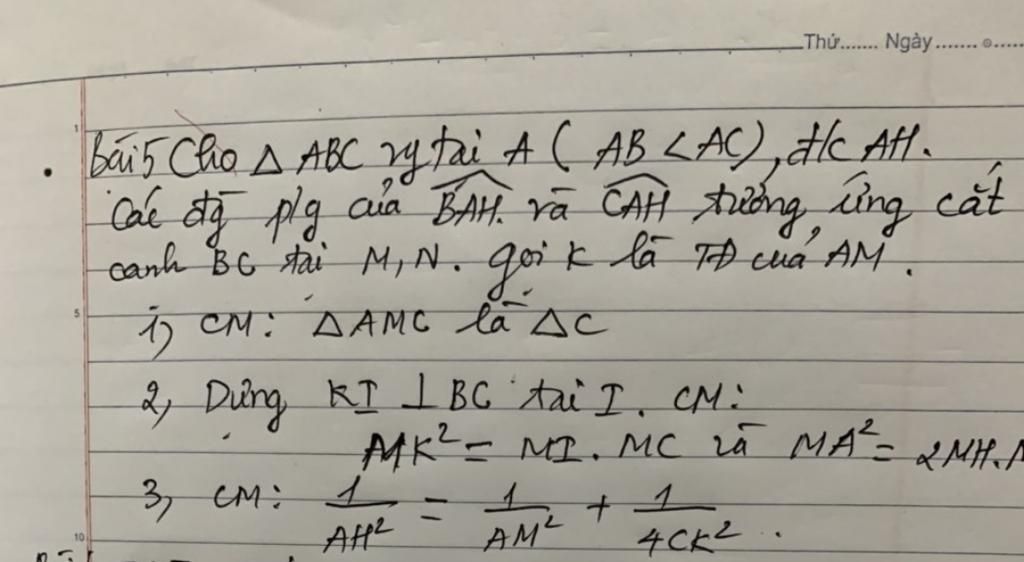 Thứ....... Ngày ........
1
Bài 5 Cho △ ABC vg tại A ( AB < AC ), đ/c AH.
Các đg p/g của BAH. và CAH tương ứng cắt
cạnh BC tại M, N. gọi K là TĐ của AM.
5
1, CM: △AMC là △C
2, Dựng KI ⊥ BC tại I. CM:
MK² = MI. MC và MA² = 2MH.
3, CM: 1/AH² = 1/AM² + 1/4CK².
10